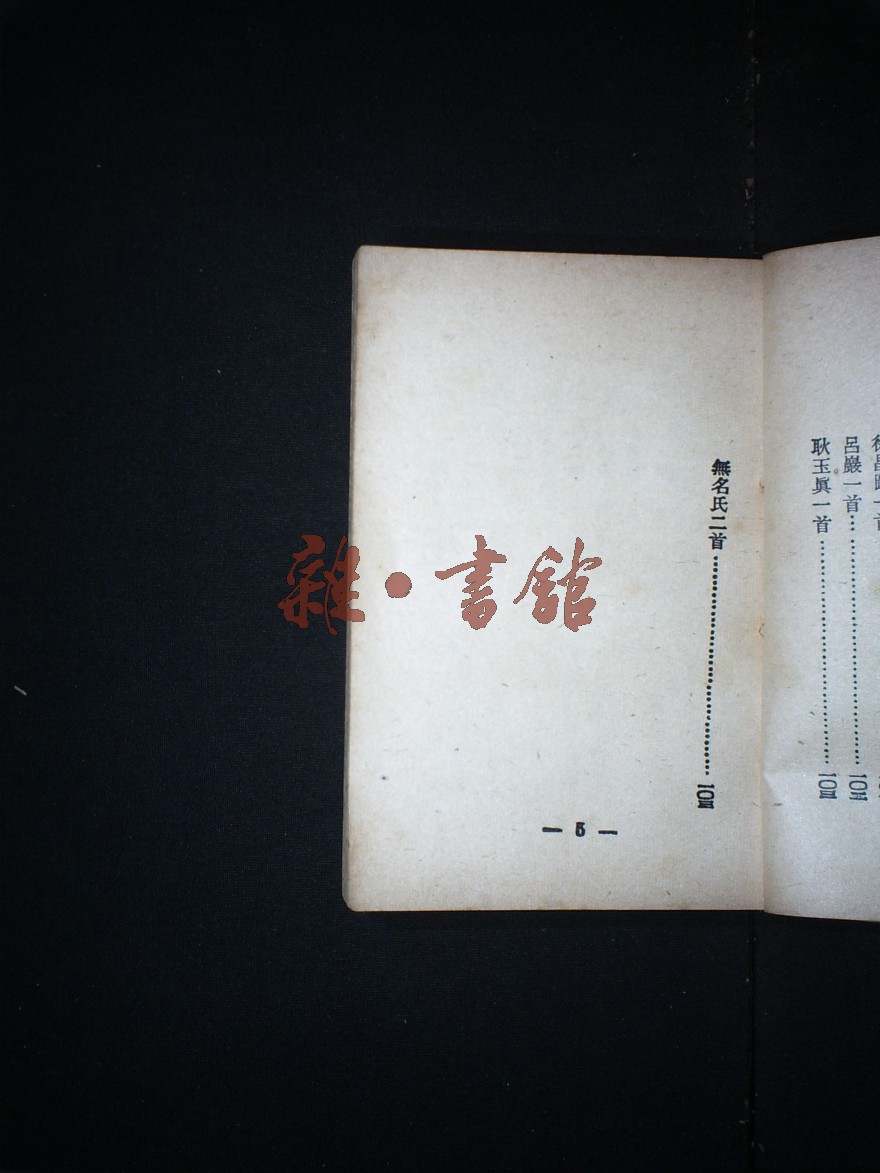 呂巖一首
耿玉眞一首
無名氏二首…………一〇四
— 5 —
雜·書館